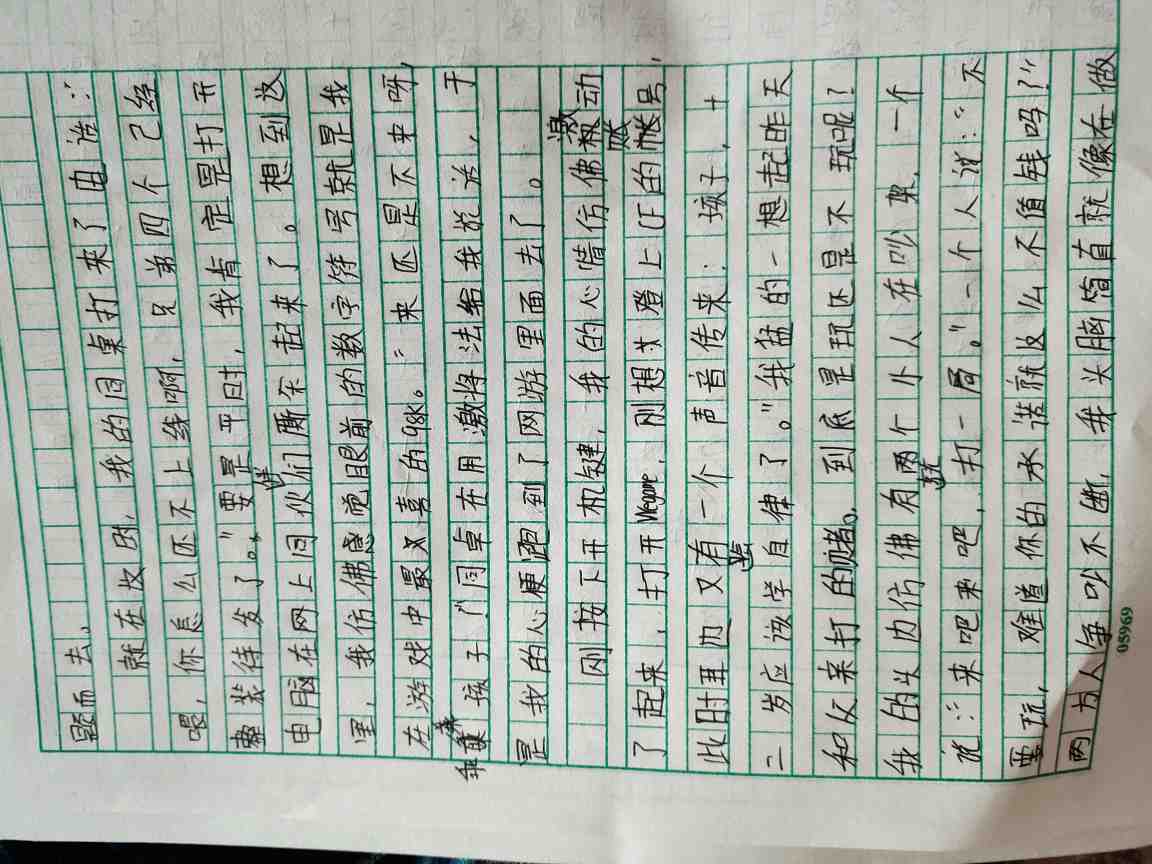 题而去。
就在这时，我的同桌打来了电话：“
喂，你怎么还不上线啊，兄弟四个已经
整装待发了。”要是平时，我肯定是打开
电脑在网上同伙们厮杀起来了。想到这
里，我仿佛感觉眼前的数字符号就是我
在游戏中最喜的98K。“来还是不来呀，
孩子！”同桌在用激将法给我说话，于
是我的心便跑到了网游里面去了。
刚按下开机键，我的心情仿佛激动
了起来，打开Wegame，刚想登上CF的账号，
此时耳边又有一个声音传来：孩子，十
二岁应该学自律了。”我猛的一想起昨天
和父亲打的赌。到底是玩还是不玩呢？
我的头边仿佛有两个小人在吵架，一个
说：“来吧来吧，打一局。”一个人说：“不
要玩，难道你的承诺就这么不值钱吗？”
两方人争吵不断，我头脑简直就像在做
05969